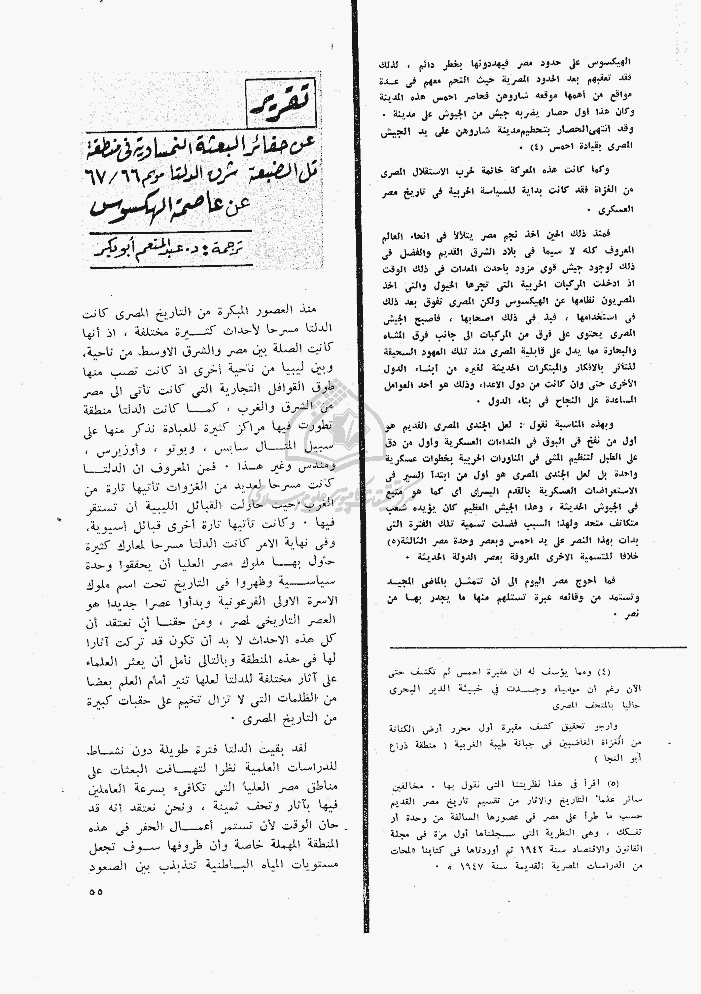 الهيكسوس على حدود مصر فيهددونها بخطر دائم ، لذلك
فقد تعقبهم بعد الحدود المصرية حيث التحم معهم فى عدة
مواقع من أهمها موقعه شاروهن فحاصر احمس هذه المدينة
وكان هذا اول حصار يضربه جيش من الجيوش على مدينة ٠
وقد انتهى الحصار بتحطيم مدينة شاروهن على يد الجيش
المصرى بقيادة احمس (٤) ٠
وكما كانت هذه المعركة خاتمة لحرب الاستقلال المصرى
من الغزاة فقد كانت بداية للسياسة الحربية فى تاريخ مصر
العسكرى ٠
فمنذ ذلك الحين اخذ نجم مصر يتلألأ فى انحاء العالم
المعروف كله لا سيما فى بلاد الشرق القديم والفضل فى
ذلك لوجود جيش قوى مزود بأحدث المعدات فى ذلك الوقت
اذ ادخلت المركبات الحربية التى تجرها الخيول والتى اخذ
المصريون نظامها عن الهيكسوس ولكن المصرى تفوق بعد ذلك
فى استخدامها ، فبذ فى ذلك اصحابها ، فأصبح الجيش
المصرى يحتوى على فرق من المركبات الى جانب فرق المشاه
والبحارة مما يدل على قابلية المصرى منذ تلك العهود السحيقة
للتأثر بالافكار والمبتكرات الحديثة لغيره من أبناء الدول
الأخرى حتى وان كانت من دول الاعداء وذلك هو أحد العوامل
المساعدة على النجاح فى بناء الدول ٠
وبهذه المناسبة نقول : لعل الجندى المصرى القديم هو
اول من نفخ فى البوق فى النداءات العسكرية واول من دق
على الطبل لتنظيم المشى فى المناورات الحربية بخطوات عسكرية
واحدة بل لعل الجندى المصرى هو اول من ابتدأ السير فى
الاستعراضات العسكرية بالقدم اليسرى أى كما هو متبع
فى الجيوش الحديثة ، وهذا الجيش العظيم كان يؤيده شعب
متكاتف متحد ولهذا السبب فضلت تسمية تلك الفترة التى
بدات بهذا النصر على يد احمس وبعصر وحدة مصر الثالثة(٥)
خلافا للتسمية الاخرى المعروفة بعصر الدولة الحديثة ٠
فما احوج مصر اليوم الى ان تتمثل بالماضى المجيد
وتستمد من وقائعه عبرة تستلهم منها ما يجدر بها من
نصر ٠
(٤) ومما يؤسف له ان مقبرة احمس لم تكشف حتى
الآن رغم أن مومياء وجدت فى خبيئة الدير البحرى
حاليا بالمتحف المصرى
وارجو تحقيق كشف مقبرة أول محرر أرض الكنانة
من الغزاة الغاصبين فى جبانة طيبة الغربية ( منطقة ذراع
أبو النجا )
(٥) اقرأ فى هذا نظريتنا التى نقول بها ٠ مخالفين
سائر علماء التاريخ والاثار من تقسيم تاريخ مصر القديم
حسب ما طرأ على مصر فى عصورها السالفة من وحدة أو
تفكك ، وهى النظرية التى سجلناها أول مرة فى مجلة
القانون والاقتصاد سنة ١٩٤٢ ثم أوردناها فى كتابنا «لمحات
من الدراسات المصرية القديمة سنة ١٩٤٧ » ٠
تقرير
عن حفائر البعثة النمساوية فى منطقة
تل الضبعة شرق الدلتا موسم ٦٧/٦٦
عن عاصمة الهكسوس
ترجمة : د. عبدالمنعم أبوبكر
منذ العصور المبكرة من التاريخ المصرى كانت
الدلتا مسرحا لأحداث كثيرة مختلفة ، اذ أنها
كانت الصلة بين مصر والشرق الاوسط من ناحية،
وبين ليبيا من ناحية أخرى اذ كانت تصب منها
طرق القوافل التجارية التى كانت تأتى الى مصر
من الشرق والغرب ، كما كانت الدلتا منطقة
تطورت فيها مراكز كثيرة للعبادة نذكر منها على
سبيل المثال سايس ، وبوتو ، وأوزيرس ،
ومندس وغير هذا ٠ فمن المعروف ان الدلتا
كانت مسرحا لعديد من الغزوات تأتيها تارة من
الغرب حيث حاولت القبائل الليبية أن تستقر
فيها ٠ وكانت تأتيها تارة أخرى قبائل أسيوية،
وفى نهاية الامر كانت الدلتا مسرحا لمعارك كثيرة
حاول بها ملوك مصر العليا أن يحققوا وحدة
سياسية وظهروا فى التاريخ تحت اسم ملوك
الاسرة الاولى الفرعونية وبدأوا عصرا جديدا هو
العصر التاريخى لمصر ، ومن حقنا أن نعتقد أن
كل هذه الاحداث لا بد أن تكون قد تركت آثارا
لها فى هذه المنطقة وبالتالى نأمل أن يعثر العلماء
على آثار مختلفة للدلتا لعلها تنير أمام العلم بعضا
من الظلمات التى لا تزال تخيم على حقبات كبيرة
من التاريخ المصرى ٠
لقد بقيت الدلتا فترة طويلة دون نشاط
للدراسات العلمية نظرا لتهافت البعثات على
مناطق مصر العليا التى تكافىء بسرعة العاملين
فيها بآثار وتحف ثمينة ، ونحن نعتقد أنه قد
حان الوقت لأن تستمر أعمال الحفر فى هذه
المنطقة المهملة خاصة وأن ظروفها سوف تجعل
مستويات المياه الباطنية تتذبذب بين الصعود
٥٥